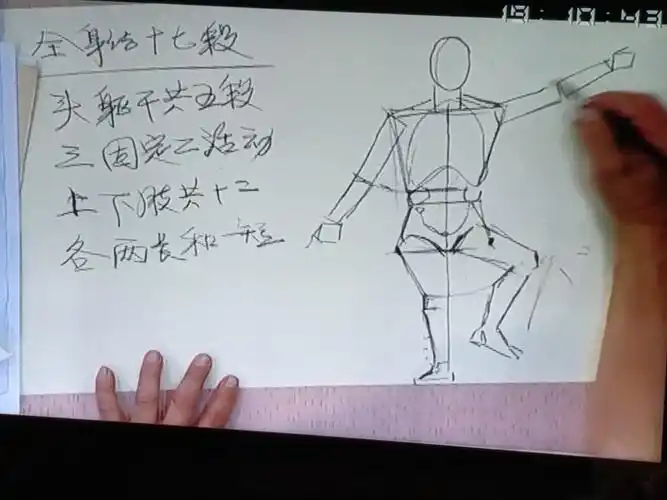 全身结十七段
头躯干共五段
三固定二活动
上下肢共十二
各两长和一短
19:10:43